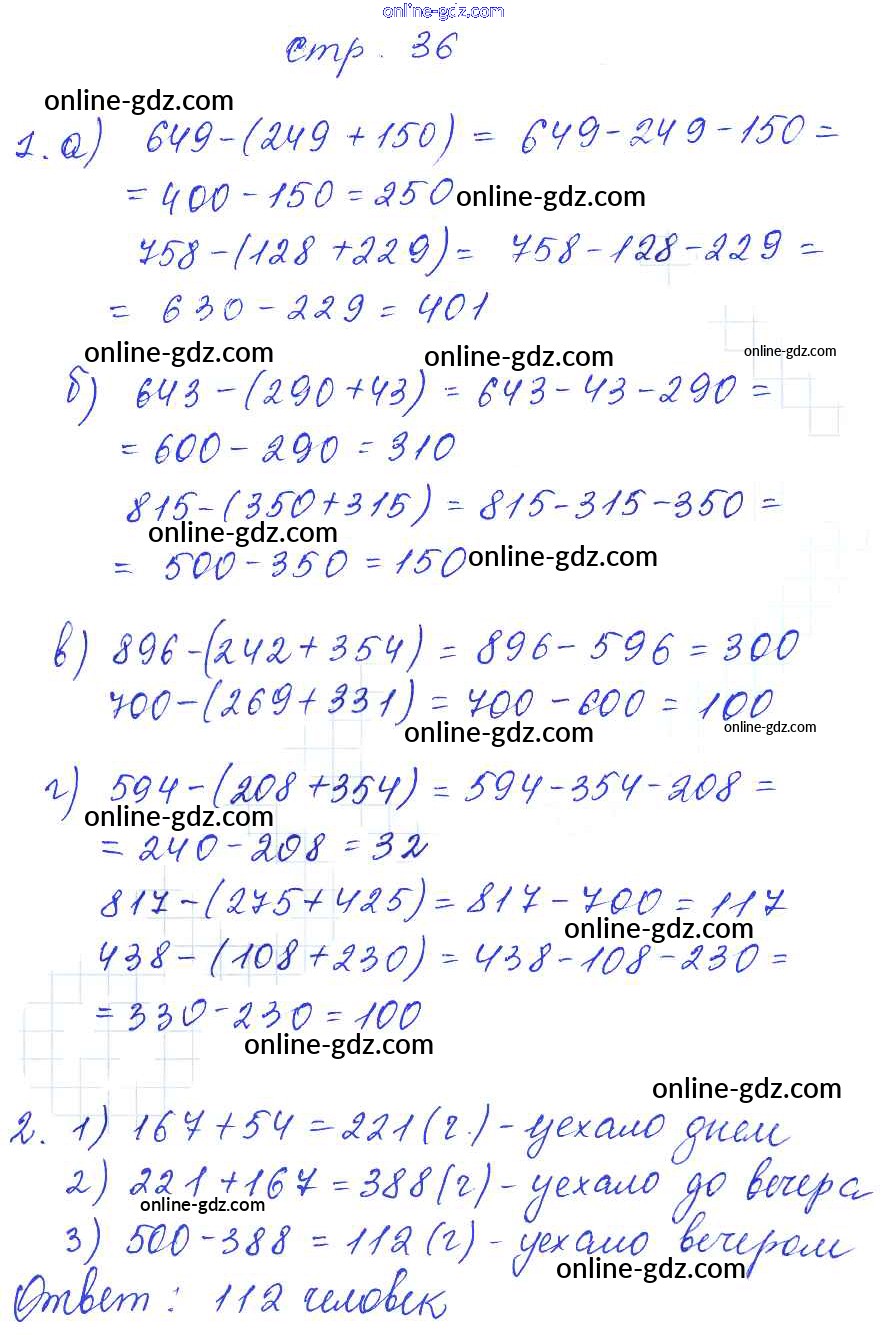 online-gdz.com
стр. 36
online-gdz.com
1. а) 649-(249+150) = 649-249-150 =
= 400-150 = 250 online-gdz.com
758-(128+229) = 758-128-229 =
= 630-229 = 401
online-gdz.com online-gdz.com online-gdz.com
б) 643-(290+43) = 643-43-290 =
= 600-290 = 310
815-(350+315) = 815-315-350 =
online-gdz.com
= 500-350 = 150 online-gdz.com
в) 896-(242+354) = 896-596 = 300
700-(269+331) = 700-600 = 100
online-gdz.com online-gdz.com
г) 594-(208+354) = 594-354-208 =
online-gdz.com
= 240-208 = 32
817-(275+425) = 817-700 = 117
online-gdz.com
438-(108+230) = 438-108-230 =
= 330-230 = 100
online-gdz.com
online-gdz.com
2. 1) 167+54 = 221 (г.) - уехало днем
2) 221+167 = 388 (г) - уехало до вечера
online-gdz.com
3) 500-388 = 112 (г) - уехало вечером
online-gdz.com
Ответ: 112 человек